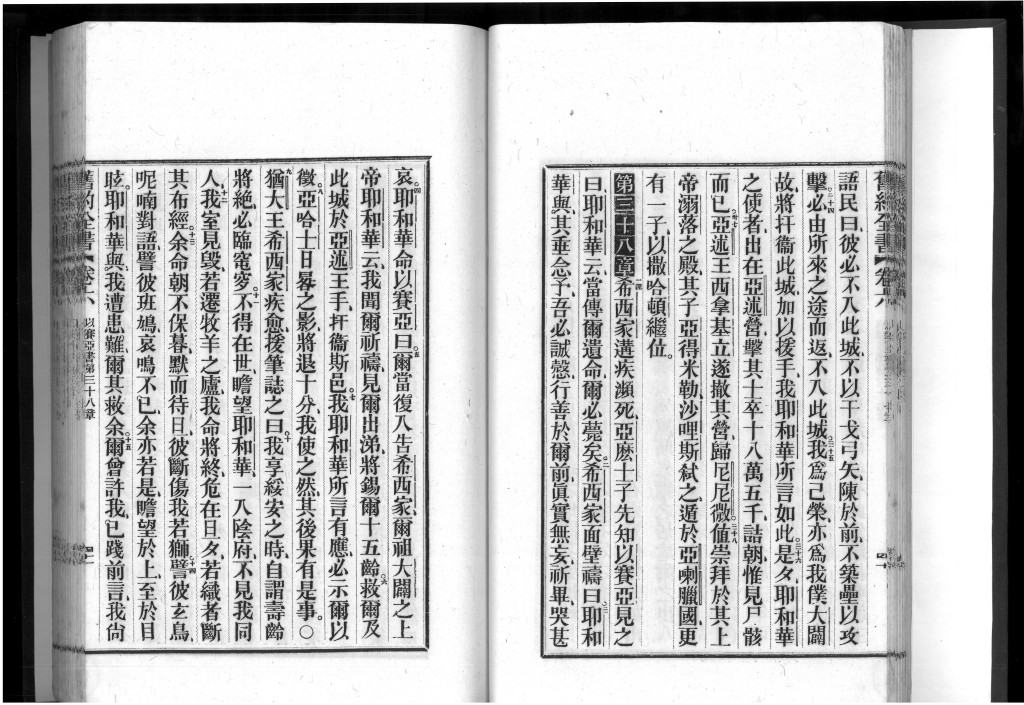 舊約全書 卷六
語民曰、彼必不入此城、不以干戈弓矢陳於前、不築壘以攻
擊、必由所來之途而返、不入此城、我爲己榮、亦爲我僕大闢
故、將扞衞此城、加以援手、我耶和華所言如此、是夕耶和華
之使者、出在亞述營、擊其士卒十八萬五千、詰朝、惟見尸骸
而已、亞述王西拿基立遂撤其營、歸尼尼微、値崇拜於其上
帝溺落之殿、其子亞得米勒、沙哩斯弑之、遁於亞喇臘國、更
有一子、以撒哈頓繼位。
第三十八章 希西家遘疾瀕死、亞麽士子先知以賽亞見之
曰、耶和華云、當傳爾遺命、爾必薨矣、希西家面壁禱曰、耶和
華與、其垂念予、吾必誠慤、行善於爾前、眞實無妄、祈畢、哭甚
哀、耶和華命以賽亞曰、爾當復入告希西家、爾祖大闢之上
帝耶和華云、我聞爾祈禱、見爾出涕、將錫爾十五齡、救爾及
此城於亞述王手、扞衞斯邑、我耶和華所言有應、必示爾以
徵、亞哈士日晷之影、將退十分、我使之然、其後果有是事。〇
猶大王希西家疾愈、援筆誌之曰、我享綏安之時、自謂壽齡
將絕、必臨窀穸、不得在世、瞻望耶和華、一入陰府、不見我同
人、我室見毀、若遷牧羊之廬、我命將終、危在旦夕、若織者斷
其布經、余命朝不保暮、默而待旦、彼斷傷我若獅、譬彼玄鳥、
呢喃對語、譬彼班鳩、哀鳴不已、余亦若是、瞻望於上、至於目
眩、耶和華與、我遭患難、爾其救余、爾曾許我、已踐前言、我尙
舊約全書 卷六 以賽亞書第三十八章